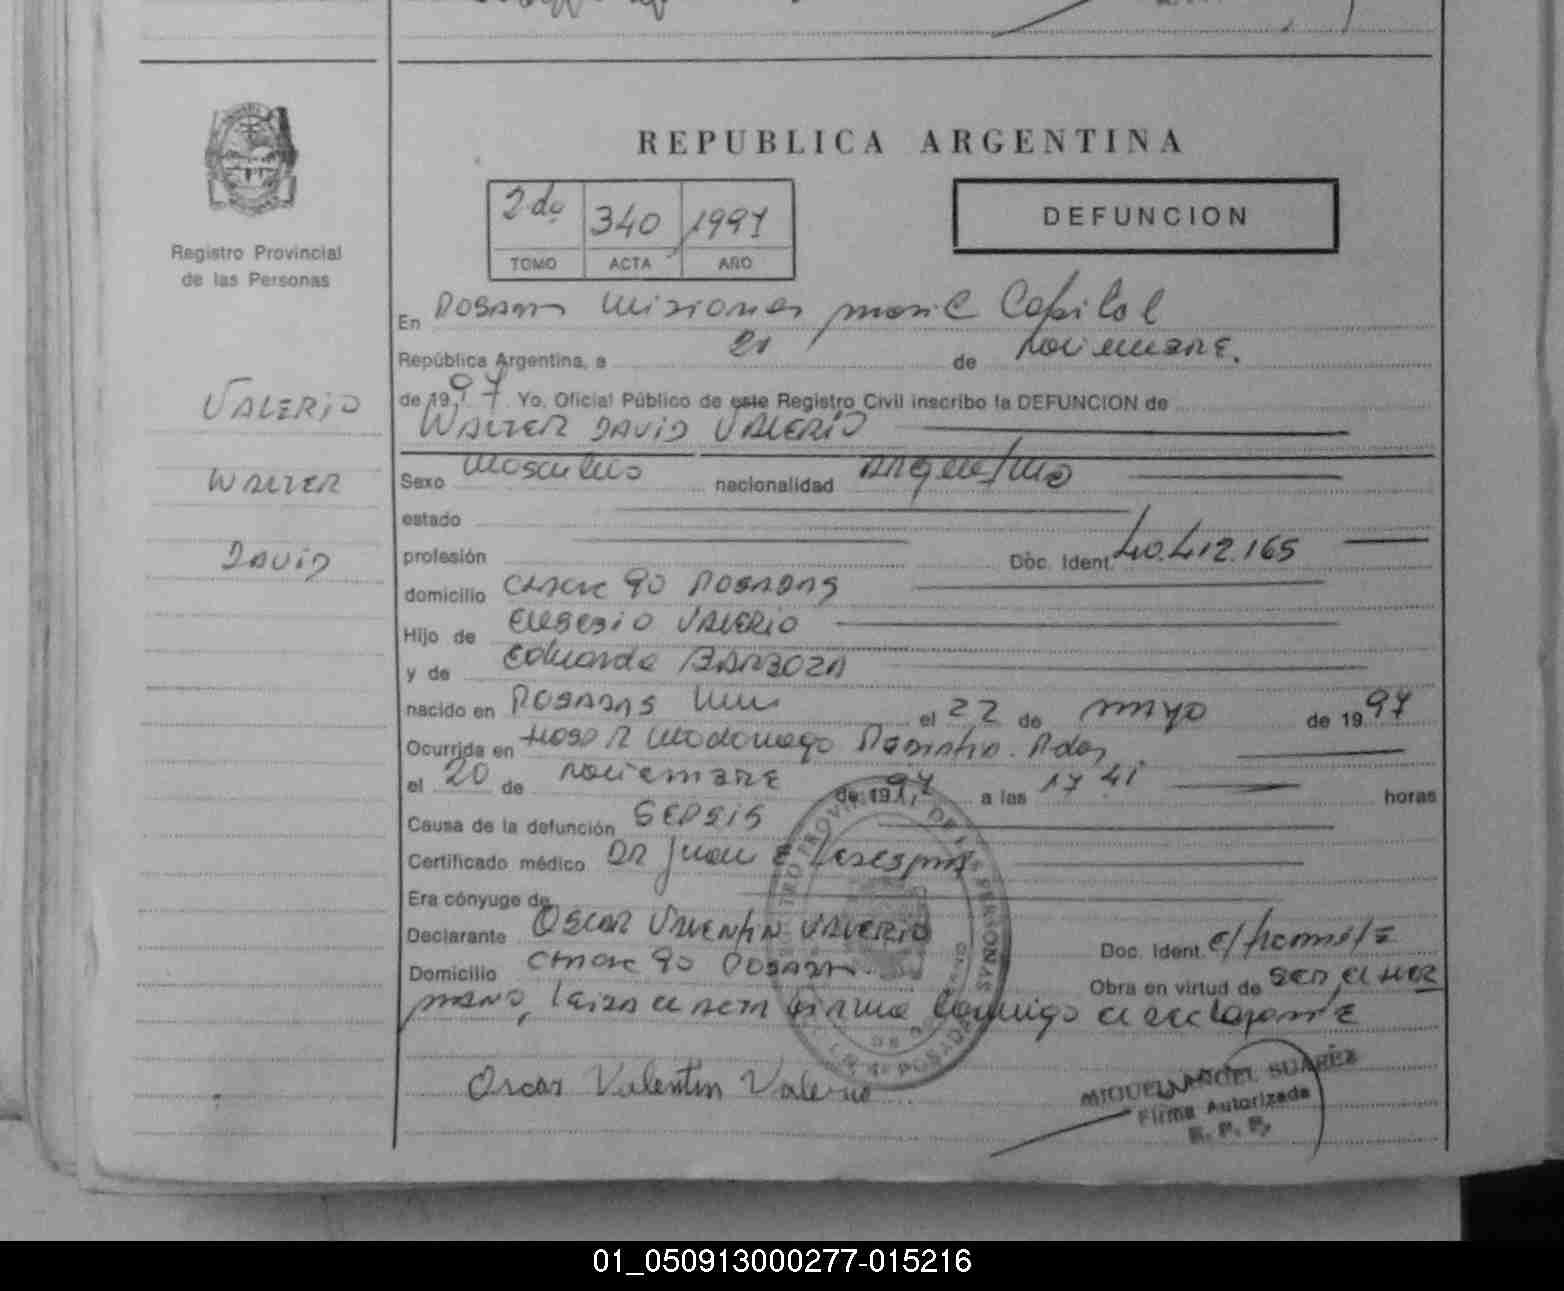 REPUBLICA ARGENTINA
2do 340 1997
TOMO ACTA AÑO
DEFUNCION
Registro Provincial
de las Personas
VALERIO
WALTER
DAVID
En Posadas Misiones Capital
República Argentina, a 21 de noviembre.
de 1997. Yo, Oficial Público de este Registro Civil inscribo la DEFUNCION de
WALTER DAVID VALERIO
Sexo Masculino nacionalidad Argentino
estado
profesión Doc. Ident. 40.412.165
domicilio 90 POSADAS
Hijo de EUSEBIO VALERIO
y de Eduarda BARBOZA
nacido en POSADAS el 22 de mayo de 1997
Ocurrida en Hosp R Madariaga
el 20 de noviembre de 1997 a las 17 41 horas
Causa de la defunción SEPSIS
Certificado médico DR Juan E
Era cónyuge de
Declarante OSCAR VALENTIN VALERIO Doc. Ident.
Domicilio 90 Posadas Obra en virtud de ser el
acta firma conmigo el declarante
Oscar Valentin Valerio
REGISTRO PROVINCIAL DE LAS PERSONAS
POSADAS
MIGUEL ANGEL SUAREZ
Firma Autorizada
R. P. P.
01_050913000277-015216